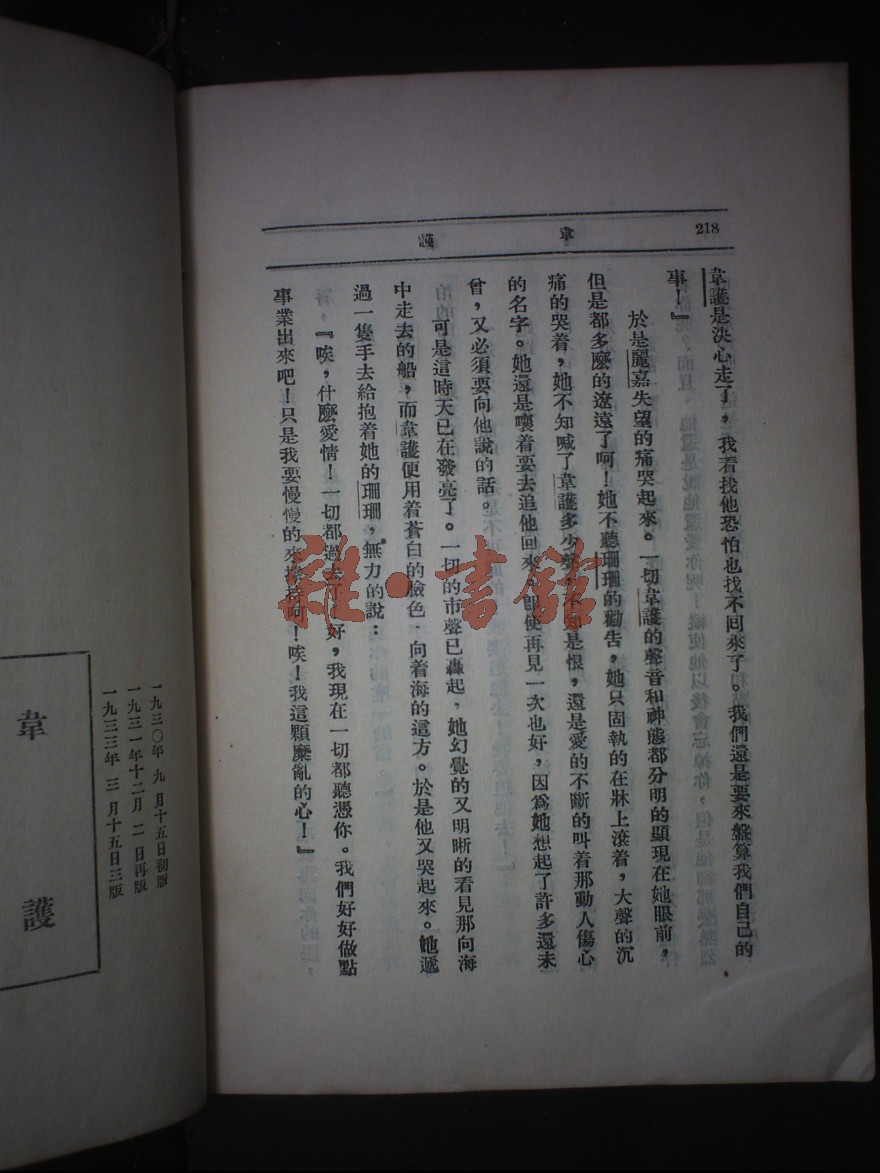 218
韋護
韋護是決心走了，我看找他恐怕也找不回來了。我們還是要來盤算我們自己的
事！』
於是麗嘉失望的痛哭起來。一切韋護的聲音和神態都分明的顯現在她眼前，
但是都多麼的遼遠了呵！她不聽珊珊的勸告，她只固執的在牀上滾着，大聲的沉
痛的哭着，她不知喊了韋護多少聲，不知是恨，還是愛的不斷的叫着那動人傷心
的名字。她還是嚷着要去追他回來，即使再見一次也好，因為她想起了許多還未
曾，又必須要向他說的話。
可是這時天已在發亮了。一切的市聲已轟起，她幻覺的又明晰的看見那向海
中走去的船，而韋護便用着蒼白的臉色，向着海的這方。於是他又哭起來。她遞
過一隻手去給抱着她的珊珊，無力的說：
『唉，什麼愛情！一切都過去了！好，我現在一切都聽憑你。我們好好做點
事業出來吧！只是我要慢慢的來撐持呵！唉！我這顆糜亂的心！』
一九三〇年九月十五日初版
一九三一年十二月二日再版
一九三三年三月十五日三版
韋護
雜·書館